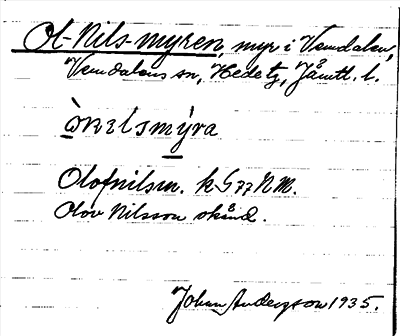 Ol-Nils-myren, myr i Vemdalen,
Vemdalens sn, Hede tg, Jämtl. l.
myra
Olofnilsm. k G77 N M.
Olov Nilsson skånd.
Johan Anderzson 1935.